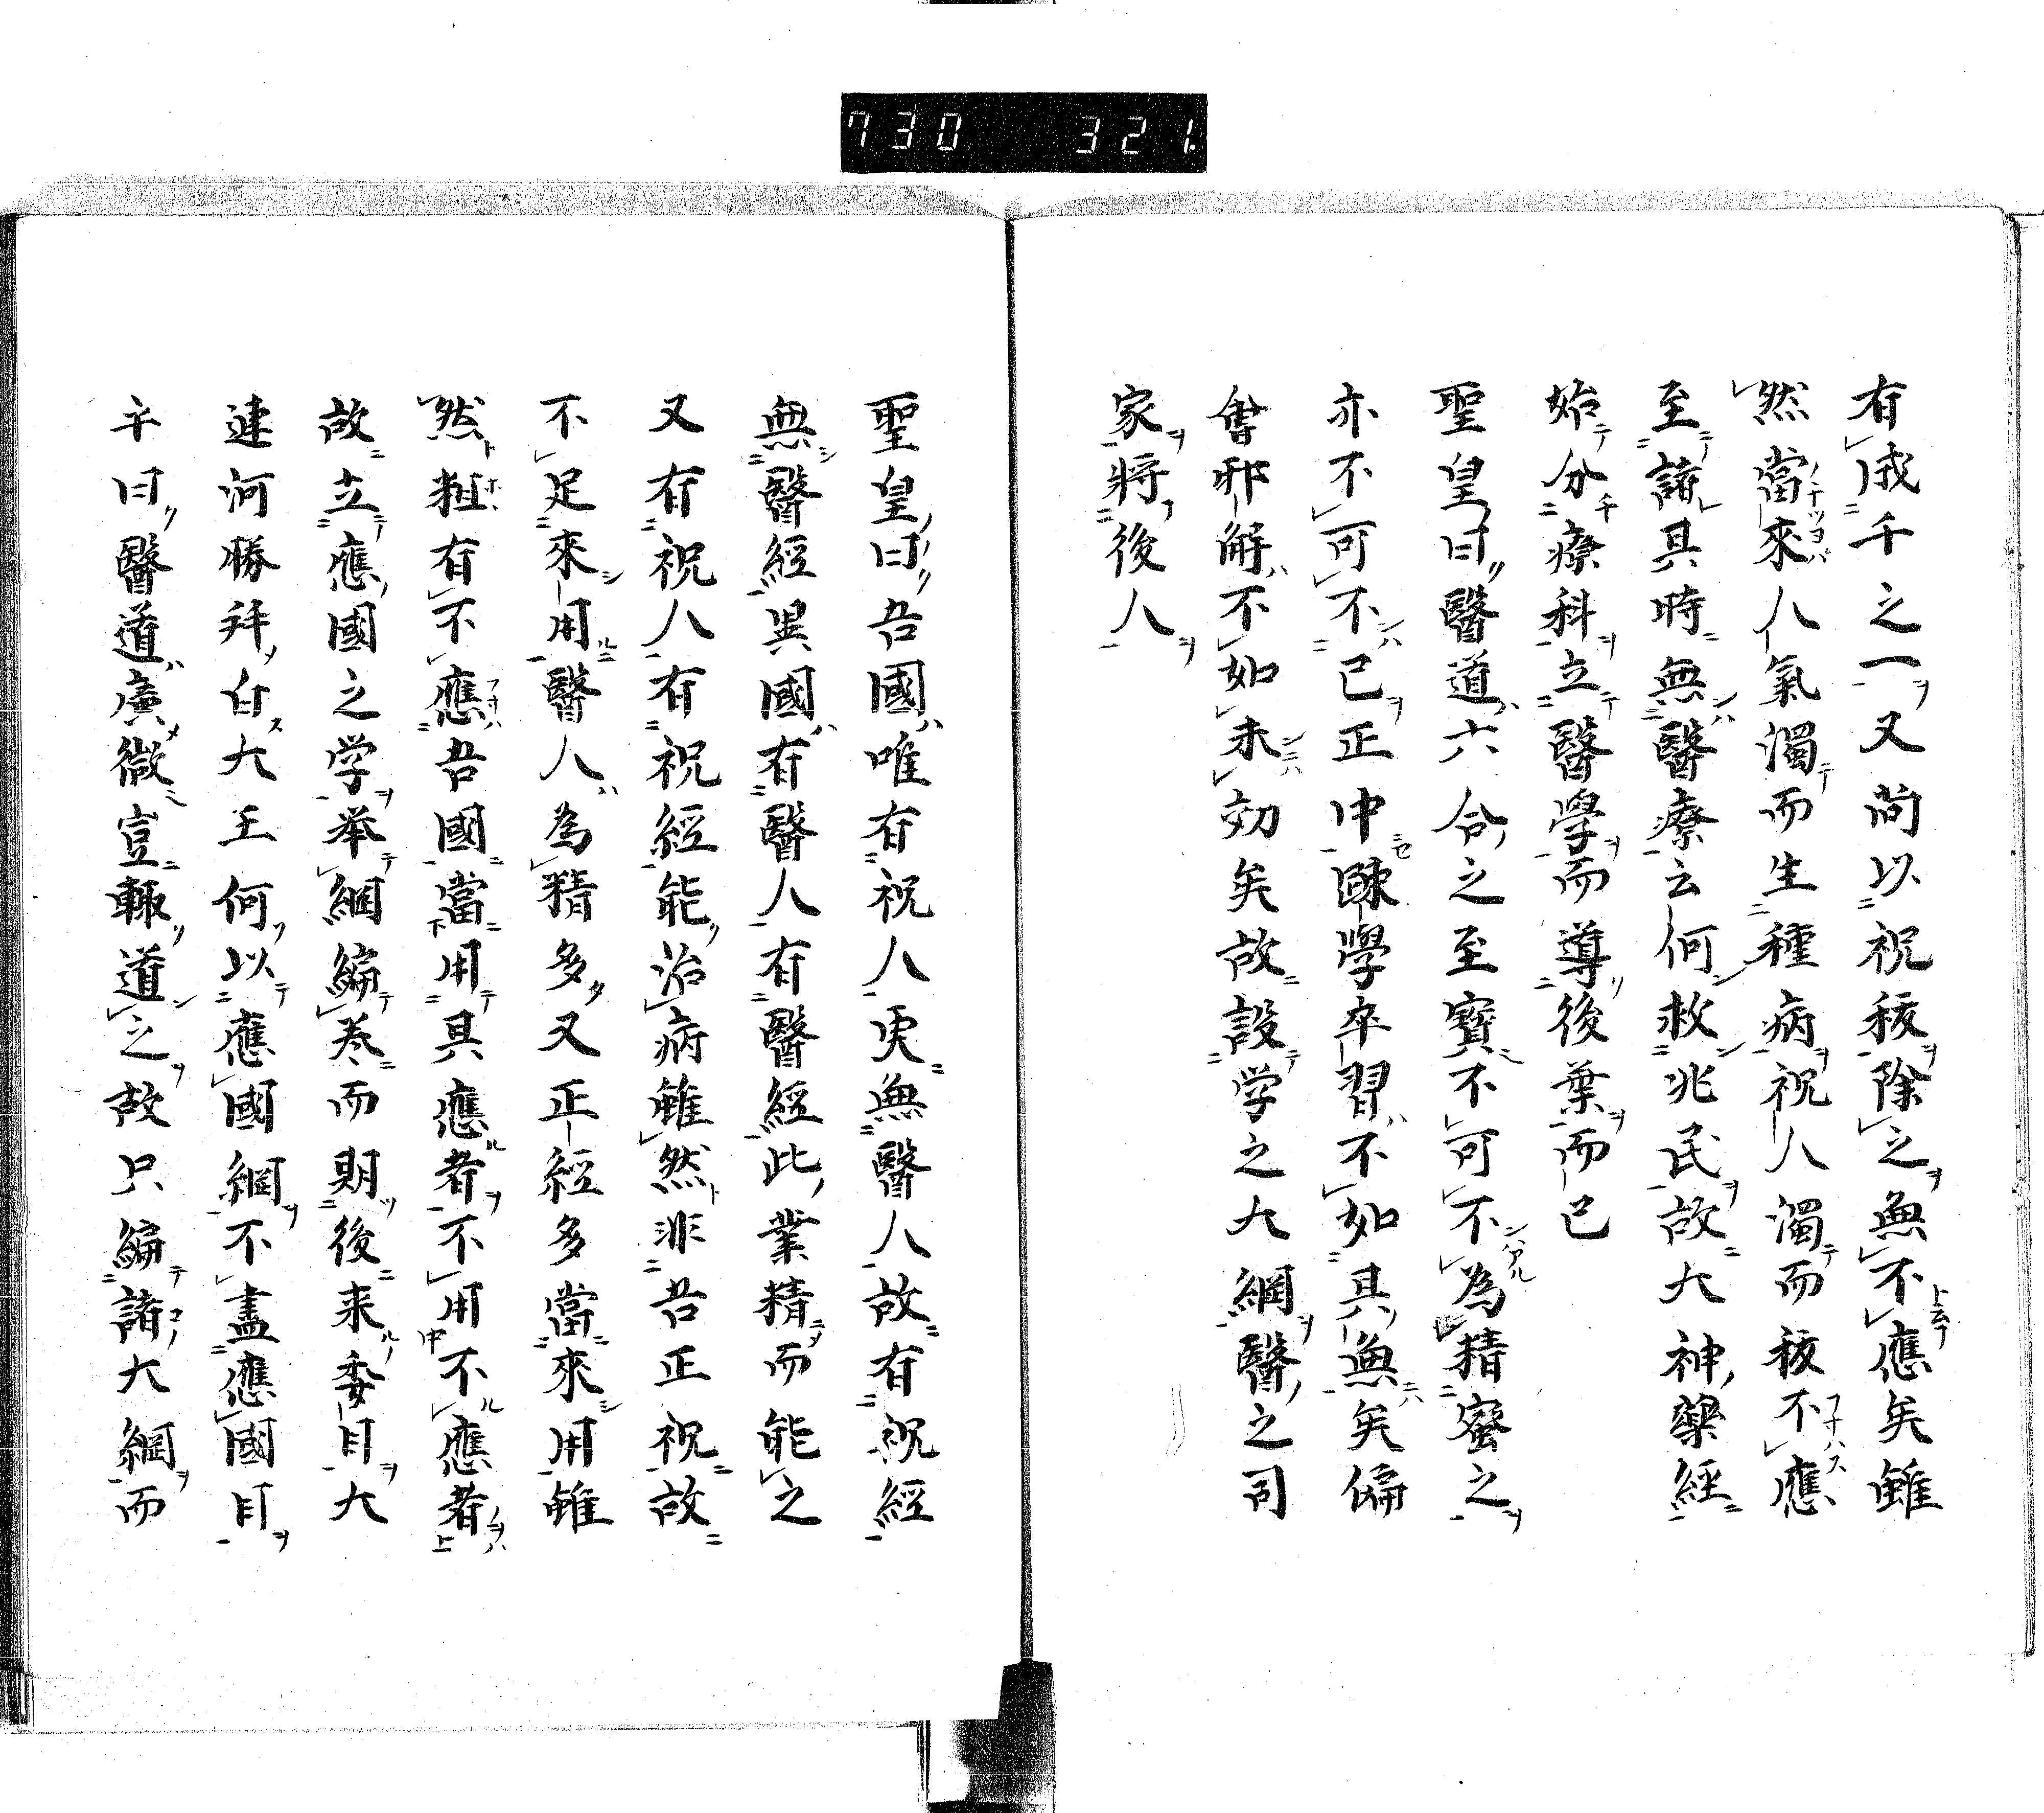 730 321.
有成千之一又尚以祝祓除之無不應矣雖
然當來人氣濁而生種病祝人濁而祓不應
至諸其時無醫療云何救兆民故大神藥經
始分療科立醫學而導後葉而已
聖皇曰醫道六合之至寶不可不為精蜜之
亦不可不已正中踈學卒習不如其無矣偏
會邪解不如未効矣故設学之大綱醫之司
家將後人
聖皇曰吾國唯有祝人更無醫人故有祝經
無醫經異國有醫人有醫經此業精而能之
又有祝人有祝經能治病雖然非吾正祝故
不足來用醫人為精多又正經多當來用雖
然粗有不應吾國當用其應者不用不應者
故立應國之学举綱編巻而期後来委目大
連河勝拜白大王何以應國綱不盡應國目
乎曰醫道廣微豈輙道之故只編諸大綱而